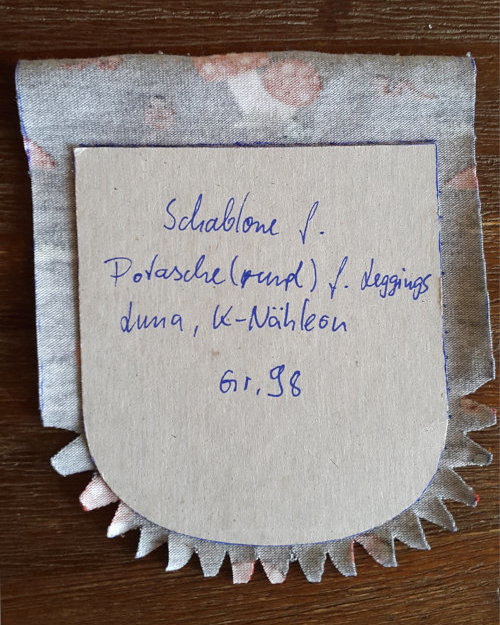 Schablone f.
Potasche (rund) f. Leggings
Luna, K-Nähleon
Gr. 98